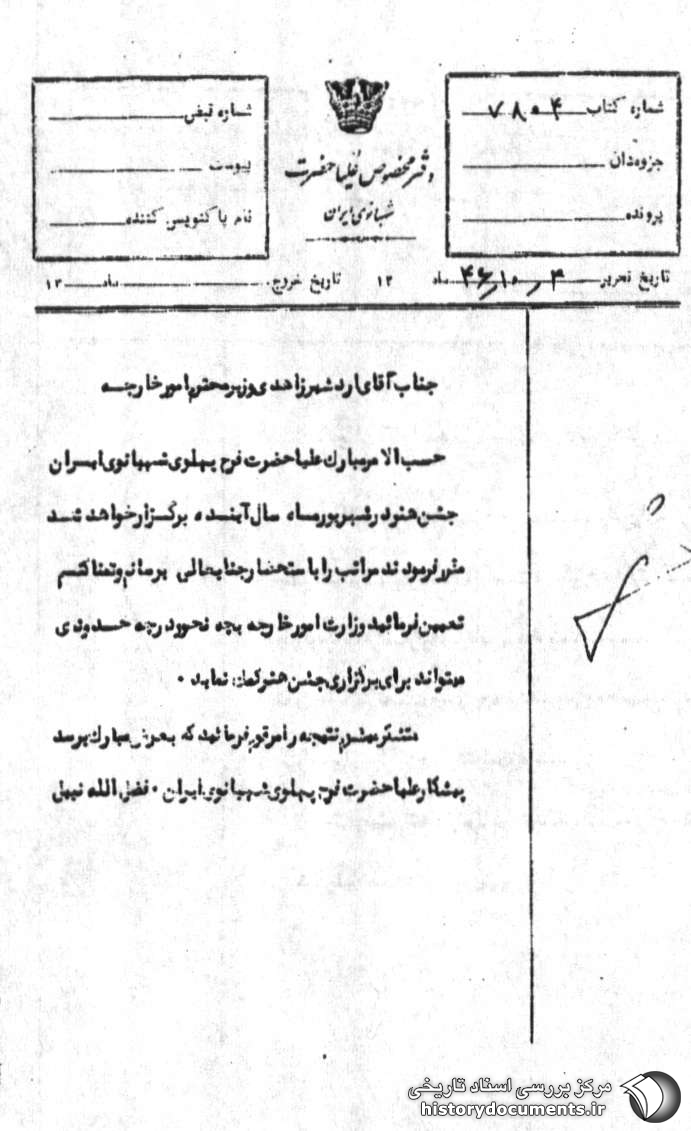 شماره کتاب ۷۸۰۴
جزوه‌دان
پرونده
دفتر مخصوص علیاحضرت
شهبانوی ایران
شماره قبض
پیوست
نام پاکنویس کننده
تاریخ تحریر ۴ / ۱۰ / ۴۶ ماه ۱۳
تاریخ خروج ماه ۱۳
جناب آقای اردشیر زاهدی وزیر محترم امور خارجه
حسب الامر مبارک علیاحضرت فرح پهلوی شهبانوی ایران
جشن هنر در شهریور ماه سال آینده برگزار خواهد شد
مقرر فرمودند مراتب را باستحضار جنابعالی برسانم و تقاضا کنم
تعیین فرمائید وزارت امور خارجه بچه نحو و درجه حدودی
میتواند برای برگزاری جشن هنر کمک نماید ۰
متشکر میشوم نتیجه را مرقوم فرمائید که بعرض مبارک برسد
پیشکار علیاحضرت فرح پهلوی شهبانوی ایران ۰ فضل الله نبیل
مرکز بررسی اسناد تاریخی
historydocuments.ir